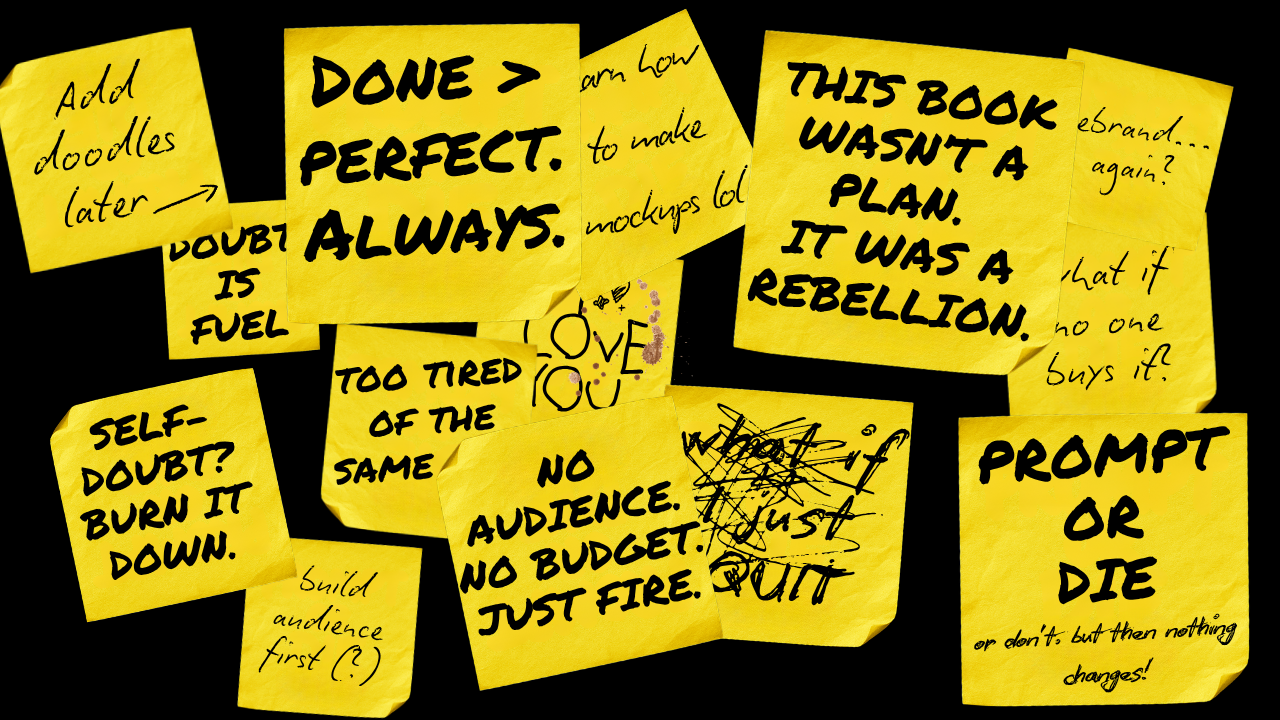 Add
doodles
later →
DOUBT
IS
FUEL
DONE >
PERFECT.
ALWAYS.
arn how
to make
mockups lol
THIS BOOK
WASN'T A
PLAN.
IT WAS A
REBELLION.
ebrand...
again?
what if
no one
buys it?
LOVE
YOU
TOO TIRED
OF THE
SAME
SELF-
DOUBT?
BURN IT
DOWN.
build
audience
first (?)
NO
AUDIENCE.
NO BUDGET.
JUST FIRE.
what if
I just
QUIT
PROMPT
OR
DIE
or don't. but then nothing
changes!